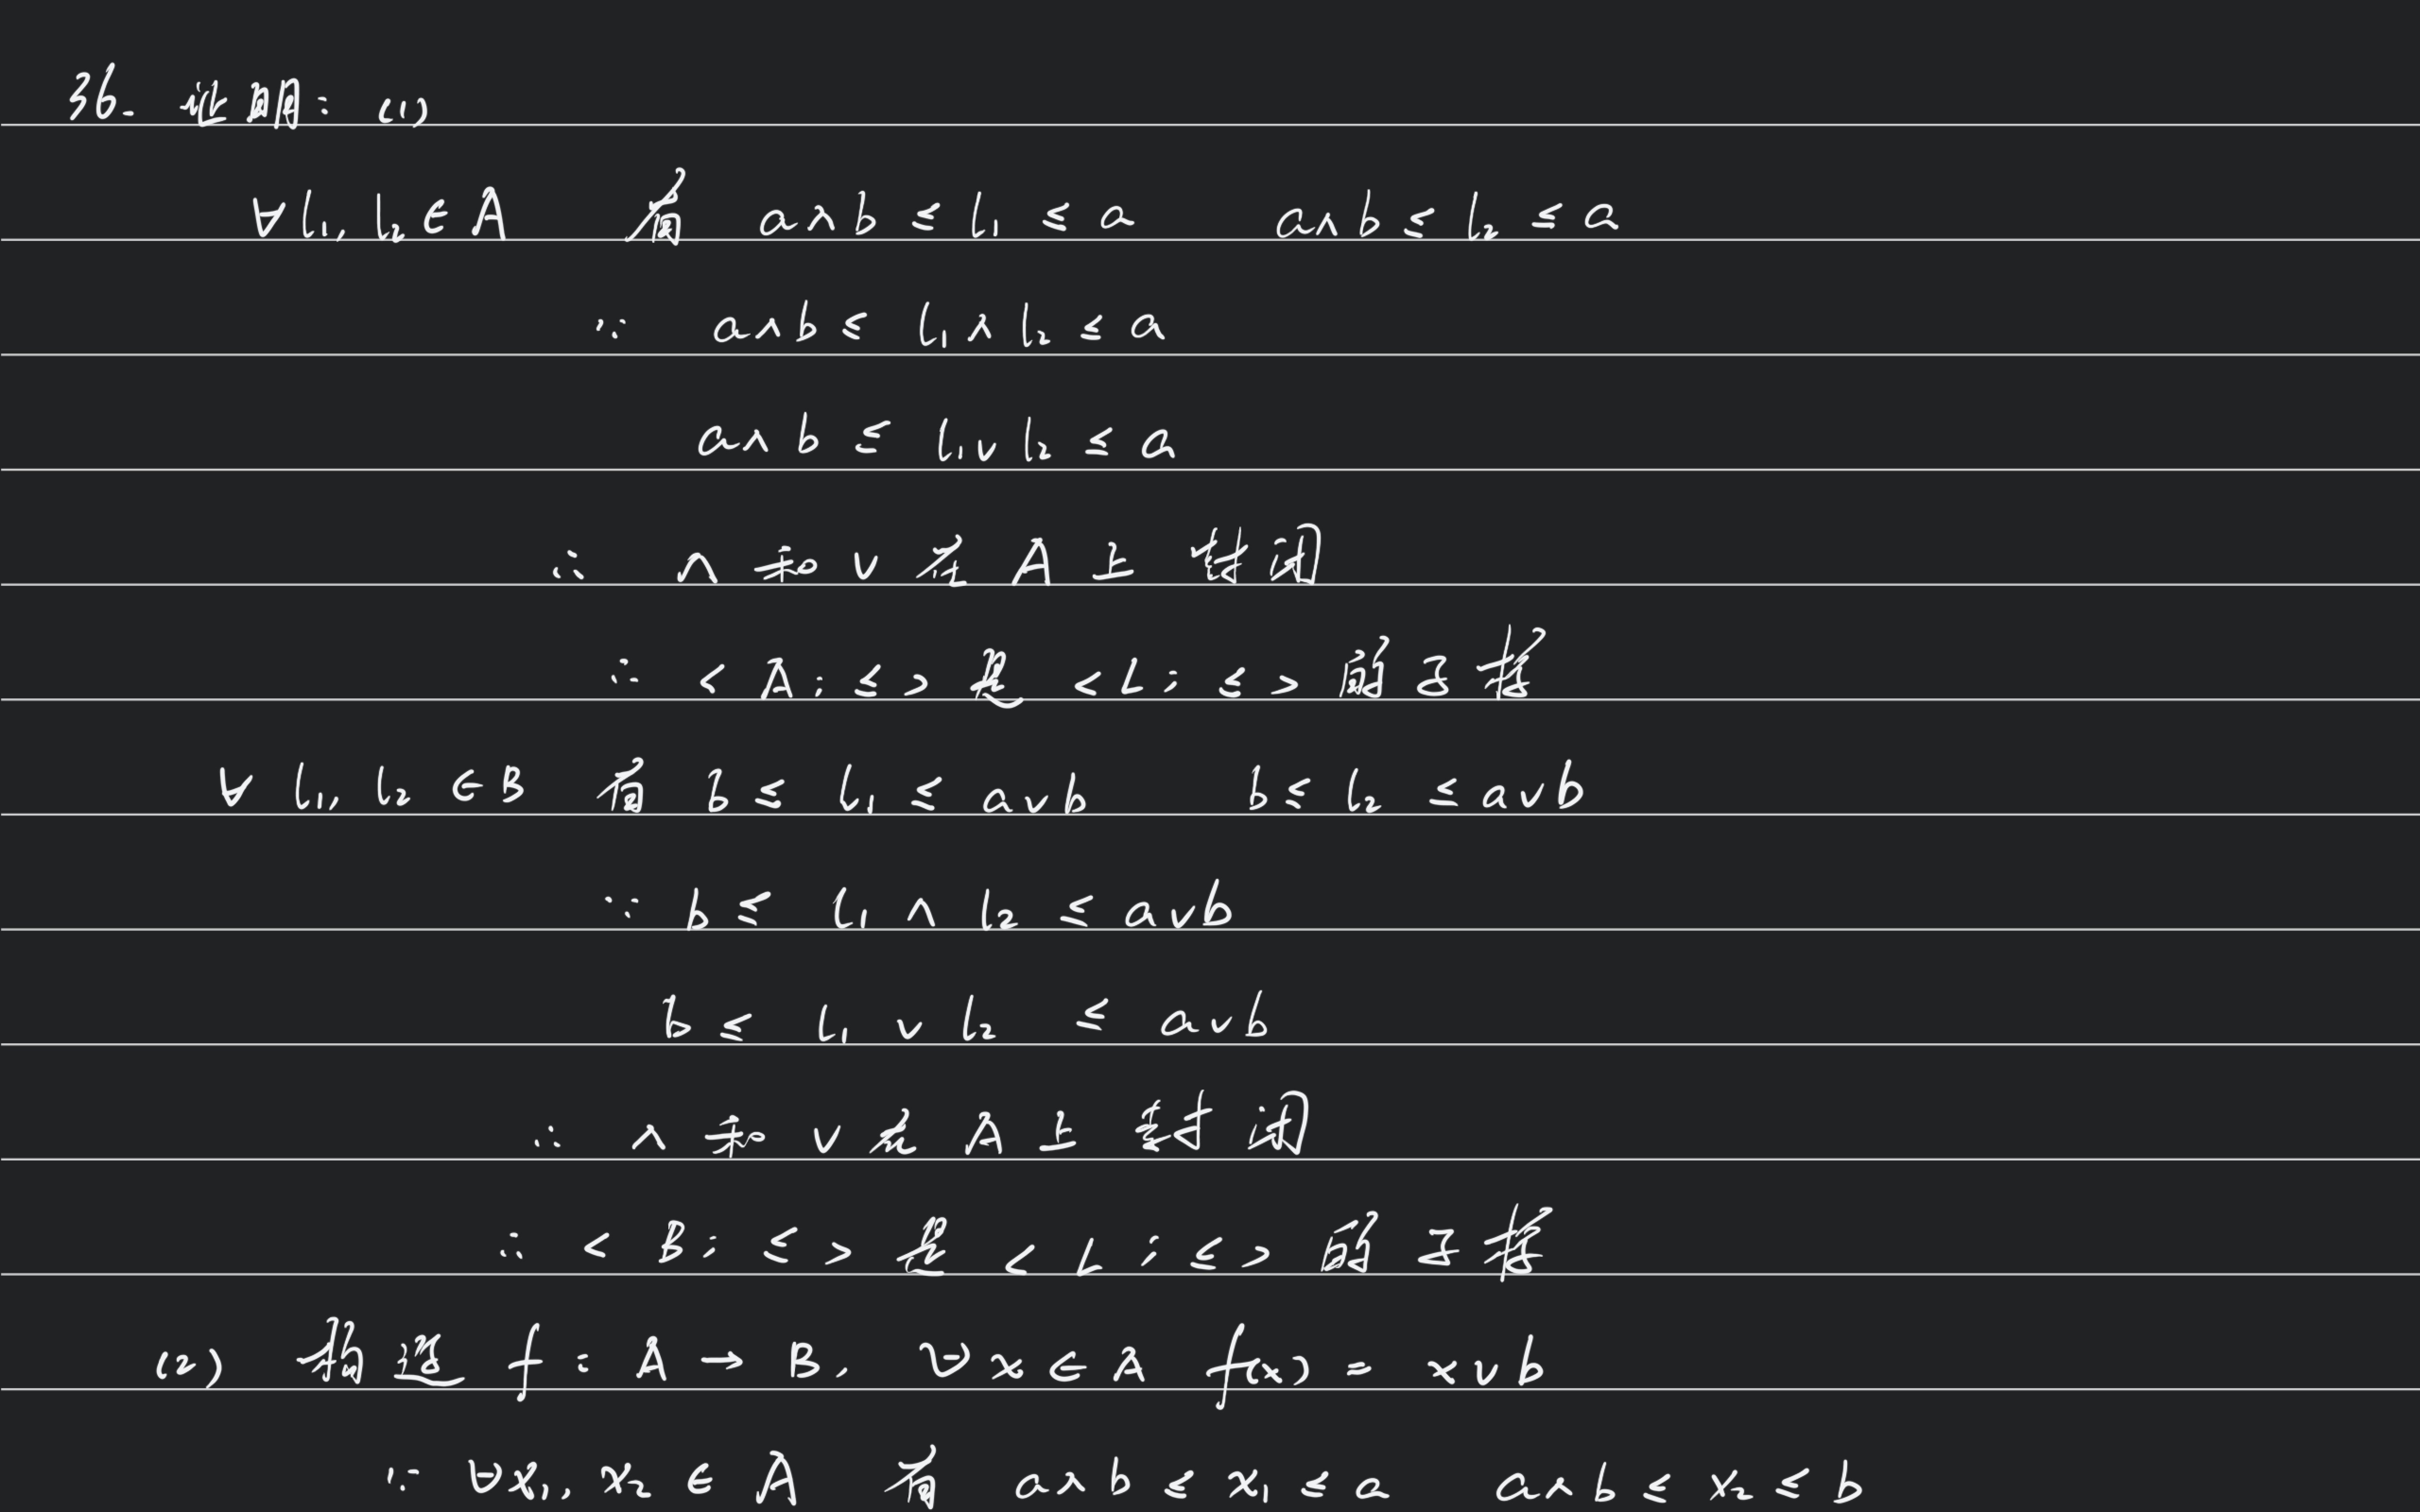 36. 证明: (1)
∀ l₁, l₂ ∈ A 有 a∧b ≤ l₁ ≤ a a∧b ≤ l₂ ≤ a
∵ a∧b ≤ l₁∧l₂ ≤ a
a∧b ≤ l₁∨l₂ ≤ a
∴ ∧和∨在A上封闭
∴ <A; ≤>是<L; ≤>的子格
∀ l₁, l₂ ∈ B 有 b ≤ l₁ ≤ a∨b b ≤ l₂ ≤ a∨b
∵ b ≤ l₁ ∧ l₂ ≤ a∨b
b ≤ l₁ ∨ l₂ ≤ a∨b
∴ ∧和∨在A上封闭
∴ <B; ≤>是<L; ≤>的子格
(2) 构造 f: A → B, ∀x ∈ A f(x) = x∨b
∵ ∀x₁, x₂ ∈ A 有 a∧b ≤ x₁ ≤ a a∧b ≤ x₂ ≤ b